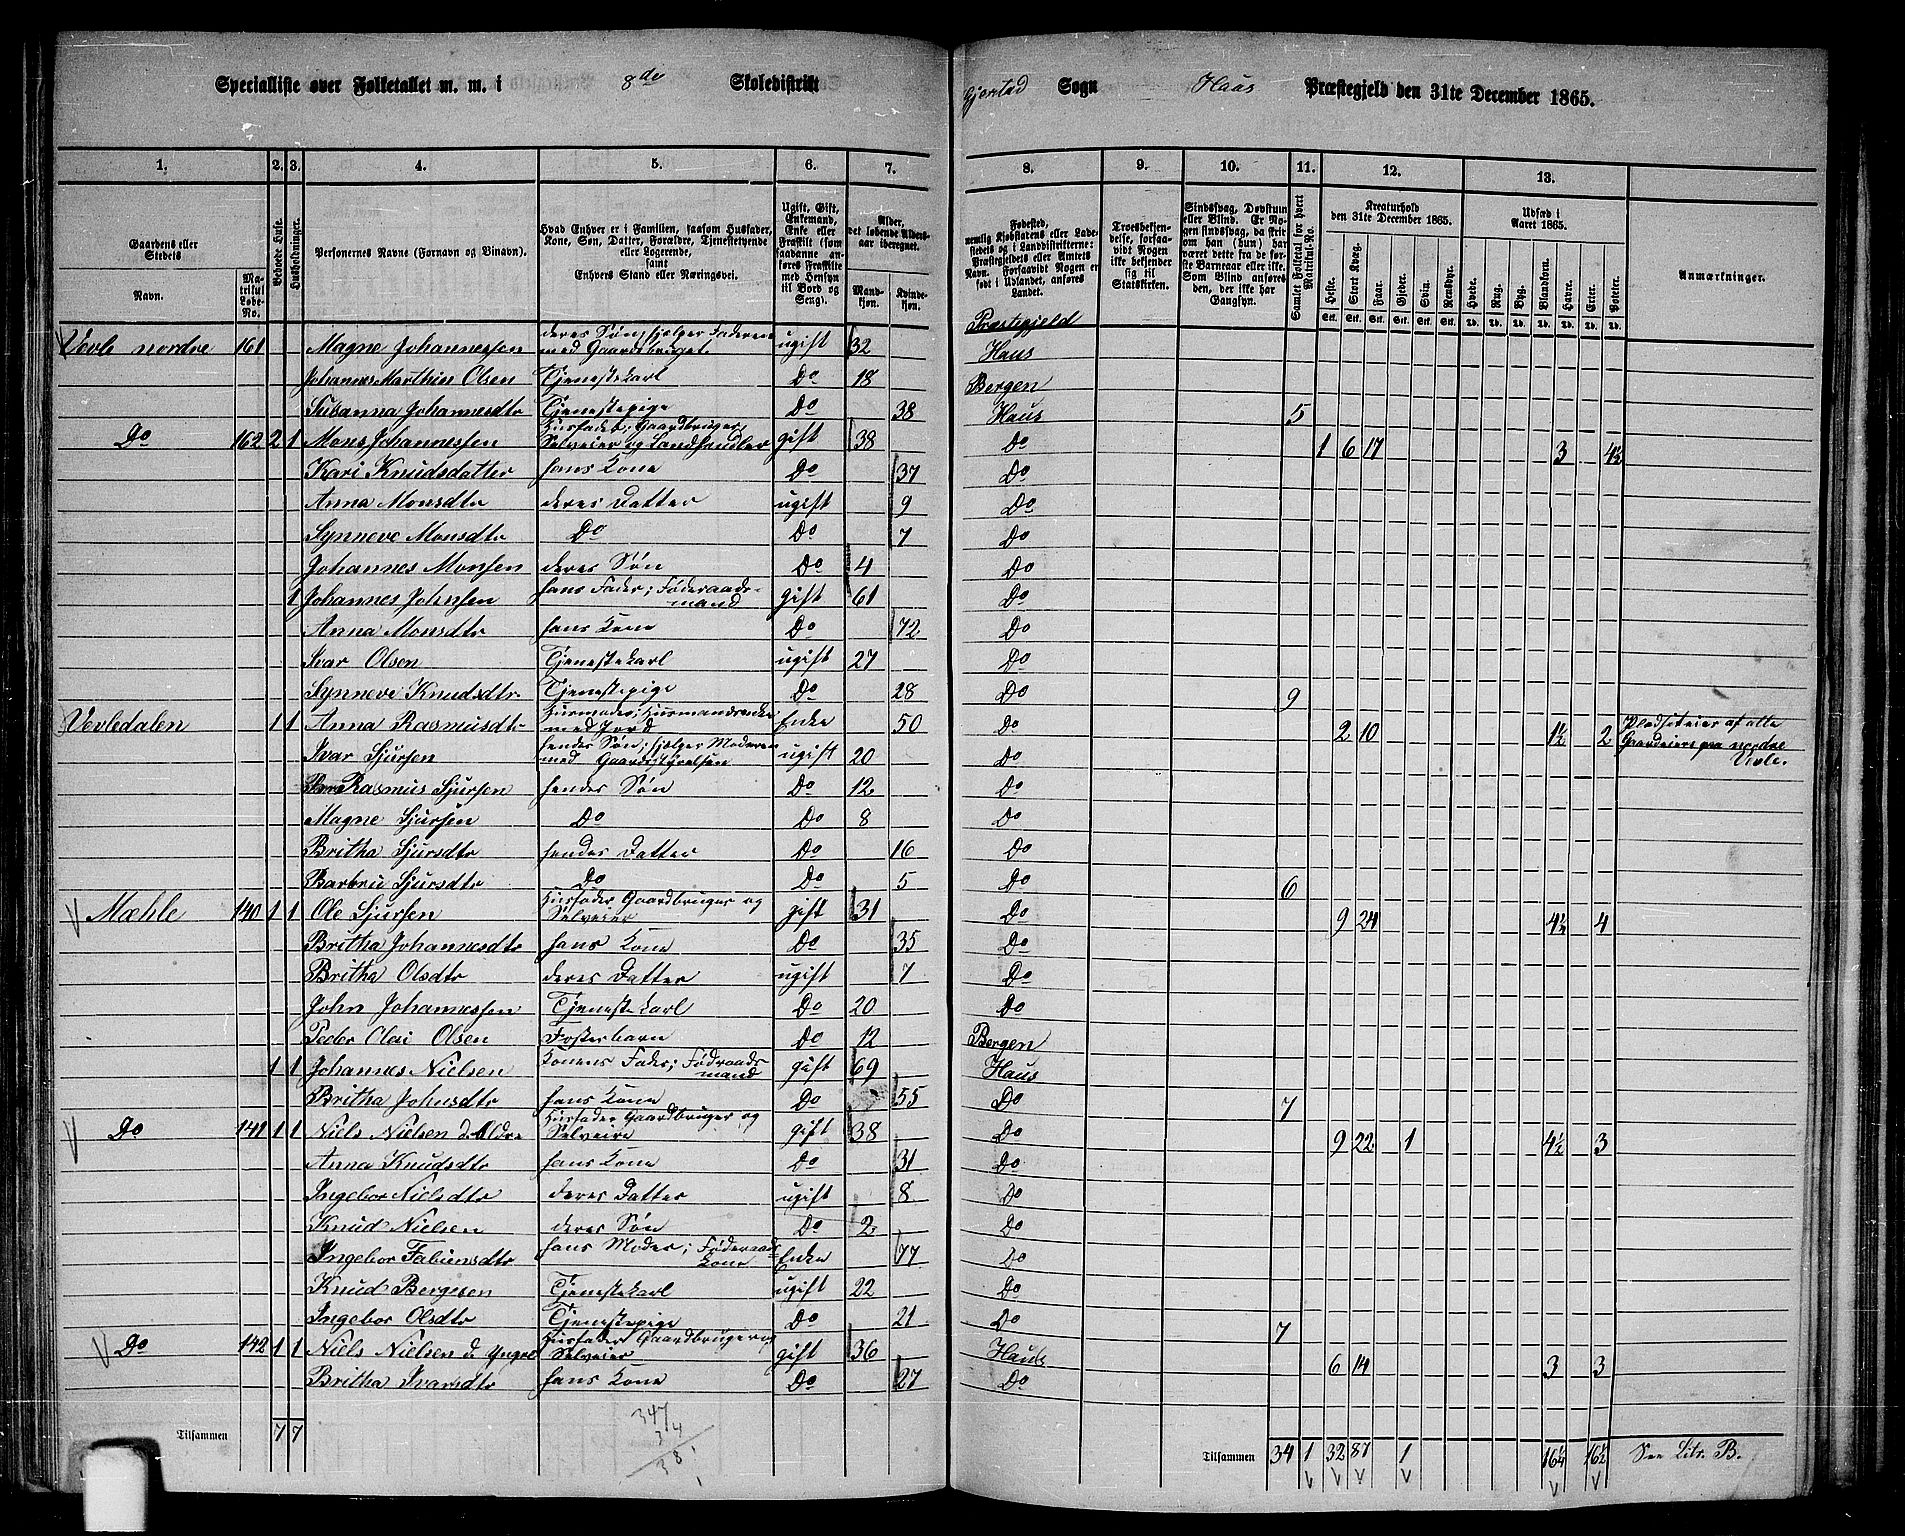 Specialliste over Folketallet m. m. i 8de Skoledistrikt Gjerstad Sogn Haus Præstegjeld den 31te December 1865.
1. 2. 3. 4. 5. 6. 7. 8. 9. 10. 11. 12. 13.
Gaardens eller Stedets
Navn.
Matrikul Løbe-No.
Beboede Huse.
Husholdninger.
Personernes Navne (Fornavn og Tilnavn).
Hvad Enhver er i Familien, saasom Husfader, Kone, Søn, Datter, Forældre, Tjenestetyende eller Logerende, samt Enhvers Stand eller Næringsvei.
Ugift, Gift, Enkemand, Enke eller Fraskilt (som saadanne anføres Fraskilte med Hensyn til Bord og Seng).
Alder, det løbende Alders-aar iberegnet.
Mandkjøn. Kvindekjøn.
Fødested, nemlig Kjøbstadens eller Ladestedets og i Landdistrikterne: Præstegjeldets eller Amtets Navn. Forsaavidt Nogen er født i Udlandet, anføres Landet.
Troesbekjendelse, forsaavidt Nogen ikke bekjender sig til Statskirken.
Sindssvag, Døvstum eller Blind. Er Nogen sindssvag, da skriv om han (hun) har været dette fra de første Barneaar eller ikke. Som Blind ansføres den, der ikke har Gangsyn.
Samlet Folketal for hvert Matrikul-No.
Kreaturhold den 31te December 1865.
Heste. Stort Kvæg. Faar. Gjeder. Svin. Rensdyr.
Udsæd i Aaret 1865.
Hvede. Rug. Byg. Blandkorn. Havre. Erter. Poteter.
Anmærkninger.
Præstegjeld
Vevle nordre 161 Magne Johannessen deres Søn, hjelper Faderen med Gaardsbruget ugift 32 Haus
Johannes Marthin Olsen Tjenestekarl Do 18 Bergen
Susanna Johannesdtr Tjenestepige Do 38 Haus 5
Do 162 2 1 Mons Johannessen Husfader, Gaardbruger, Selveier og Landhandler gift 38 Do 1 6 17 3 4½
Kari Knudsdatter hans Kone Do 37 Do
Anna Monsdtr deres Datter ugift 9 Do
Synneve Monsdtr Do Do 7 Do
Johannes Monsen deres Søn Do 4 Do
1 Johannes Johnsen hans Fader; Føderaadsmand gift 61 Do
Anna Monsdtr hans Kone Do 72 Do
Ivar Olsen Tjenestekarl ugift 27 Do
Synneve Knudsdtr Tjenestepige Do 28 Do 9
Vevledalen 1 1 Anna Rasmusdtr Husmoder; Husmandsenke med Jord Enke 50 Do 2 10 1½ 2 Pladseier af alle Gaardeiere paa nordre Vevle.
Ivar Sjursen hendes Søn; hjelper Moderen med Gaardsstyrelsen ugift 20 Do
Rasmus Sjursen hendes Søn Do 12 Do
Magne Sjursen Do Do 8 Do
Britha Sjursdtr hendes Datter Do 16 Do
Barbru Sjursdtr Do Do 5 Do 6
Mæhle 140 1 1 Ole Sjursen Husfader Gaardbruger og Selveier gift 31 Do 9 24 4¼ 4
Britha Johannesdtr hans Kone Do 35 Do
Britha Olsdtr deres Datter ugift 7 Do
John Johannessen Tjenestekarl Do 20 Do
Peder Olai Olsen Fosterbarn Do 12 Bergen
1 1 Johannes Nielsen Konens Fader; Føderaadsmand gift 69 Haus
Britha Johnsdtr hans Kone Do 55 Do 7
Do 141 1 1 Niels Nielsen d. Eldre Husfader Gaardbruger og Selveier gift 38 Do 9 22 1 4½ 3
Anna Knudsdtr hans Kone Do 31 Do
Ingebor Nielsdtr deres Datter ugift 8 Do
Knud Nielsen deres Søn Do 2 Do
Ingebor Fabiensdtr hans Moder; Føderaadskone Enke 77 Do
Knud Bergesen Tjenestekarl ugift 22 Do
Ingebor Olsdtr Tjenestepige Do 21 Do 7
Do 142 1 1 Niels Nielsen d. Yngre Husfader Gaardbruger og Selveier gift 36 Haus 6 14 3 3
Britha Ivarsdtr hans Kone Do 27 Do
347
34
381
Tilsammen 7 7
Tilsammen 34 1 32 87 1 16¼ 16½ See Litr. B.